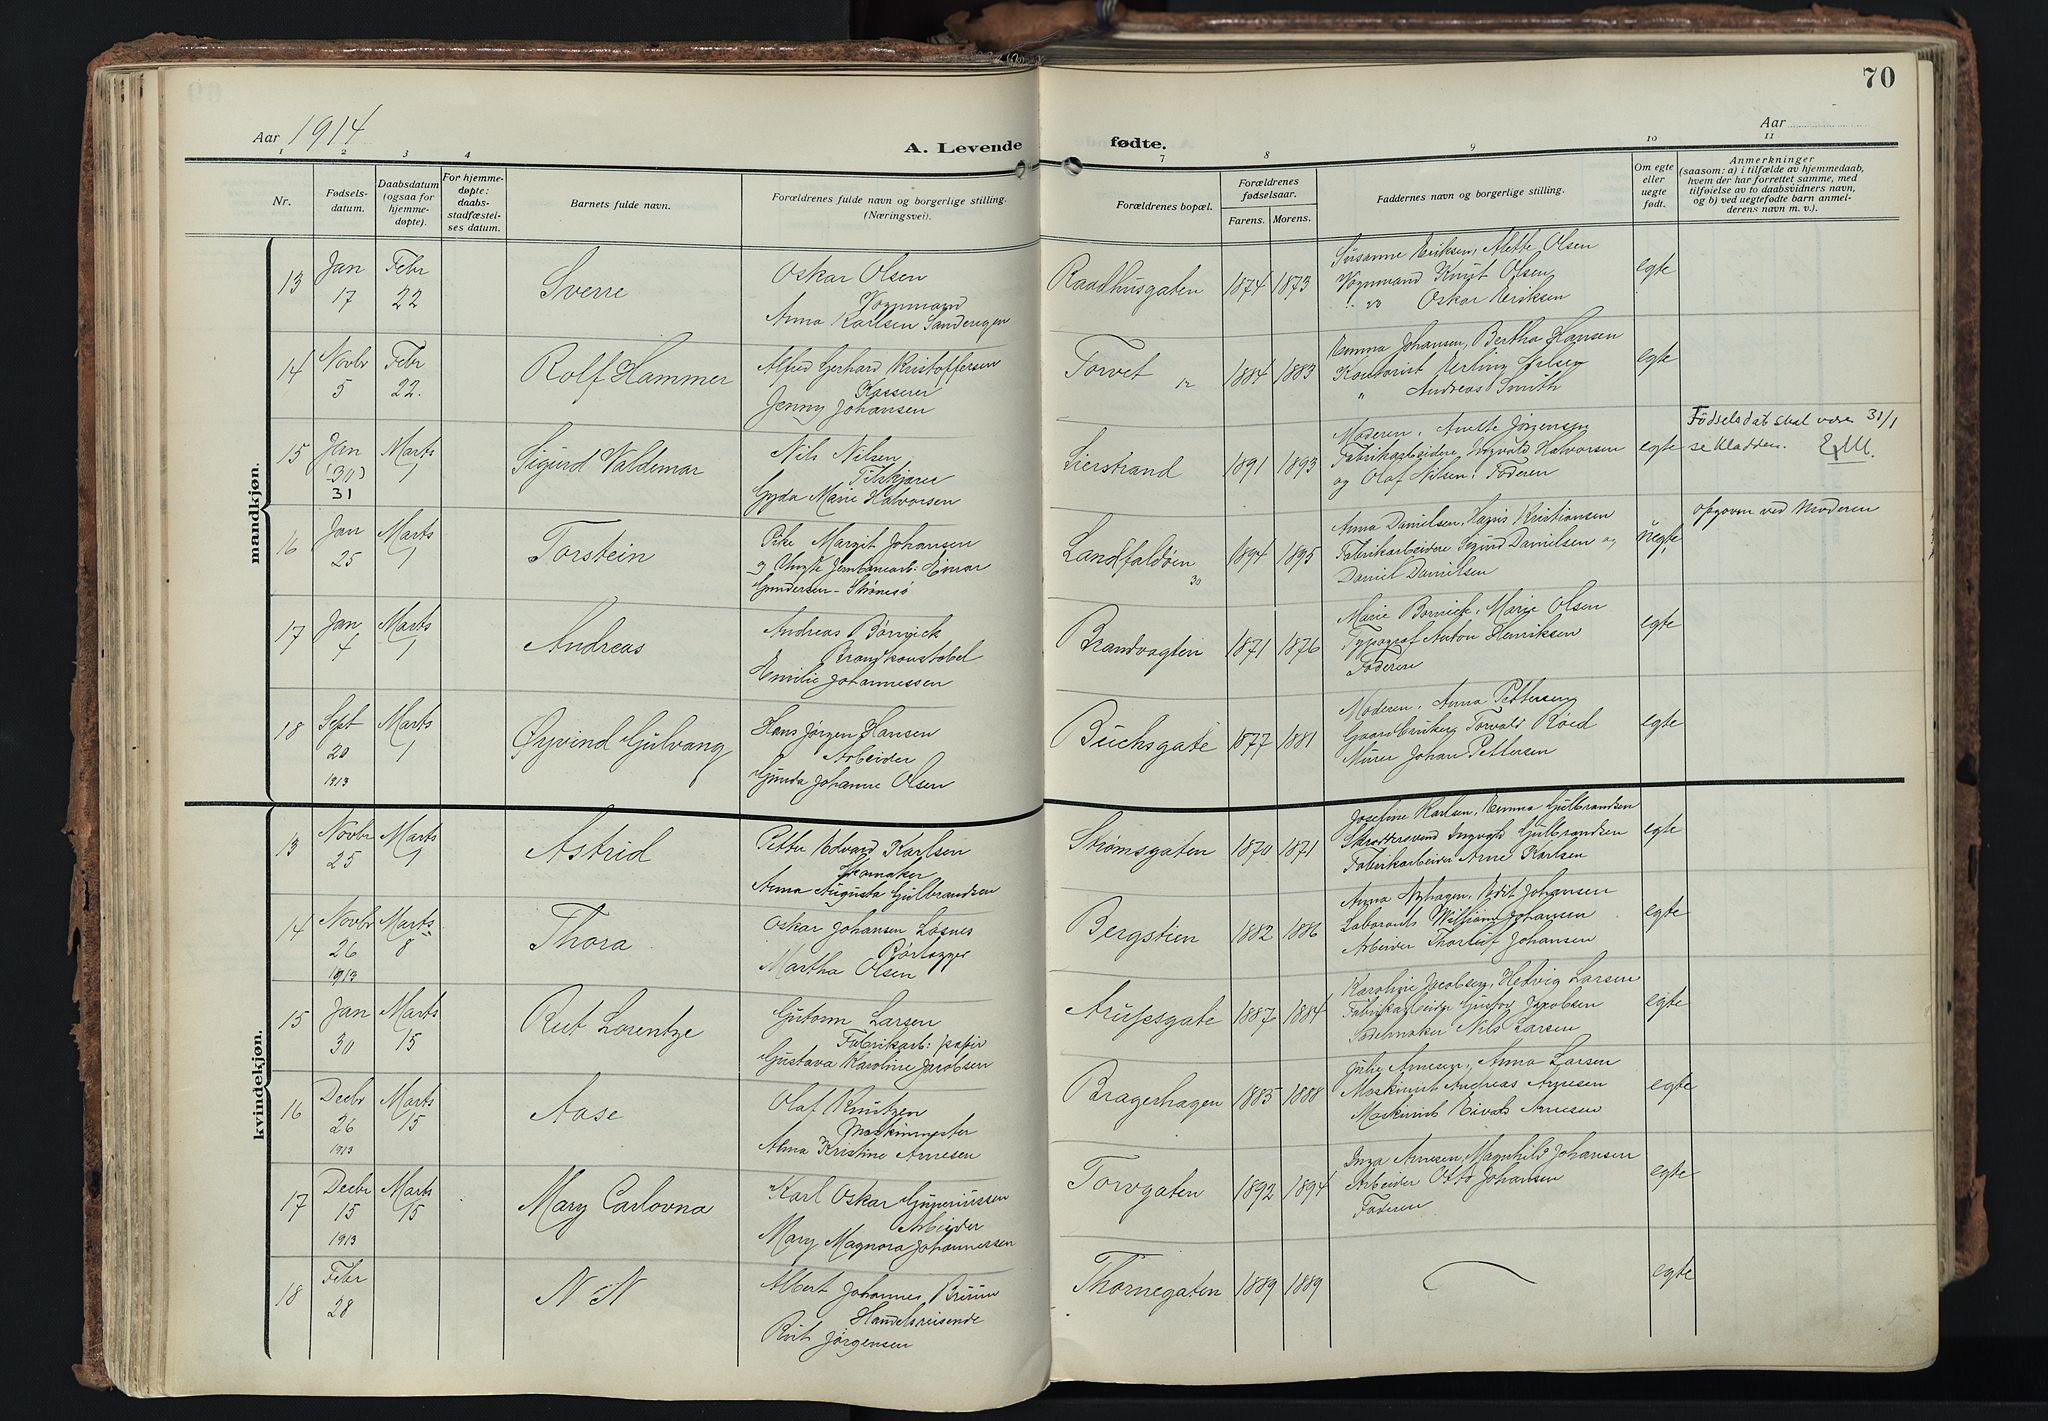 70
Aar 1914
A. Levende fødte.
Aar
1 2 3 4 7 8 9 10 11
Nr.
Fødsels-
datum.
Daabsdatum
(ogsaa for
hjemme-
døpte).
For hjemme-
døpte:
daabs-
stadfæstel-
ses datum.
Barnets fulde navn.
Forældrenes fulde navn og borgerlige stilling.
(Næringsvei).
Forældrenes bopæl.
Forældrenes
fødselsaar.
Farens. Morens.
Faddernes navn og borgerlige stilling.
Om egte
eller
uegte
født.
Anmerkninger
(saasom: a) i tilfælde av hjemmedaab,
hvem der har forrettet samme, med
tilføielse av to daabsvidners navn,
og b) ved uegtefødte barn anmel-
derens navn m. v.).
mandkjøn.
13 Jan 17 Febr 22 Sverre
Oskar Olsen
Vognmand
Anna Karlsen
Raadhusgaten 1874 1873
Susanne Eriksen, Mette Olsen
Vognmand Knut Olsen
Oskar Eriksen
egte
14 Novbr 5 Febr 22. Rolf Hammer
Alfred Gerhard Kristoffersen
Kasserer
Jenny Johansen
Torvet 12 1884 1883
Emma Johansen, Bertha Hansen
Kontorist Erling Nilsen
" Andreas Smith
egte
15 Jan (30) 31 Marts 1 Sigurd Valdemar
Nils Nilsen
Filskjærer
Gyda Marie Halvorsen
Lierstrand 1891 1893
Moderen, Anette Jørgensen
Fabrikarbeidere Ingvald Halvorsen
og Olaf Nilsen, Faderen
egte
Fødselsdat skal være 31/1
se kladden.
16 Jan 25 Marts 1 Torstein
Pike Margit Johansen
og Einar
Gundersen - Strømsø
Landfaldøen 30 1894 1895
Anna Danielsen, Kristiansen
Fabrikarbeidere Sigurd Danielsen og
Daniel Danielsen
uegte
opgaven ved Moderen
17 Jan 4 Marts 1 Andreas
Andreas Bornick
Brandkonstabel
Emilie Johannessen
Brandvagten 1871 1876
Marie Bornick, Marie Olsen
Typograf Anton Henriksen
Faderen
egte
18 Sept 20 1913 Marts 1 Øyvind Gulvang
Hans Jørgen Hansen
Arbeider
Gunda Johanne Olsen
Buchsgate 1877 1881
Moderen, Anna Pettersen
Gaardbruker Torvald Røed
Murer Johan Pettersen
egte
kvindekjøn.
13 Novbr 25 Marts 1 Astrid
Petter Edvard Karlsen
Skomaker
Anna Augusta Gulbrandsen
Strømsgaten 1870 1871
Josefine Karlsen, Emma Gulbrandsen
Skræddersvend Ingvald Gulbrandsen
Fabrikarbeider Arne Karlsen
egte
14 Novbr 26 1913 Marts 8 Thora
Oskar Johansen Løsnes
Rørlægger
Martha Olsen
Bergstien 1882 1886
Anna Nyhagen, Edit Johansen
Johansen
Arbeider Thorleif Johansen
egte
15 Jan 30 Marts 15 Rut Lorentze
Gutorm Larsen
Fabrikarb: papir
Gustava Karoline Jacobsen
Aruesgate 1887 1884
Karoline Jacobsen, Hedvig Larsen
Fabrikarbeider Gustav Jacobsen
Sadelmaker Nils Larsen
egte
16 Decbr 26 1913 Marts 15 Aase
Olaf Knutzen
Maskinmester
Alma Kristine Arnesen
Bragerhagen 1885 1888
Julie Arnesen, Anna Larsen
Maskinist Andreas Arnesen
Maskinist Eivald Arnesen
egte
17 Decbr 15 1913 Marts 15 Mary Carlovna
Karl Oskar Guneriussen
Arbeider
Mary Magnora Johannessen
Torvgaten 1892 1894
Inga Arnesen, Magnhild Johansen
Arbeider Otto Johansen
Faderen
egte
18 Febr 28 N N
Albert Johannes Bruun
Handelsreisende
Rut Jørgensen
Thornegaten 1889 1889
egte